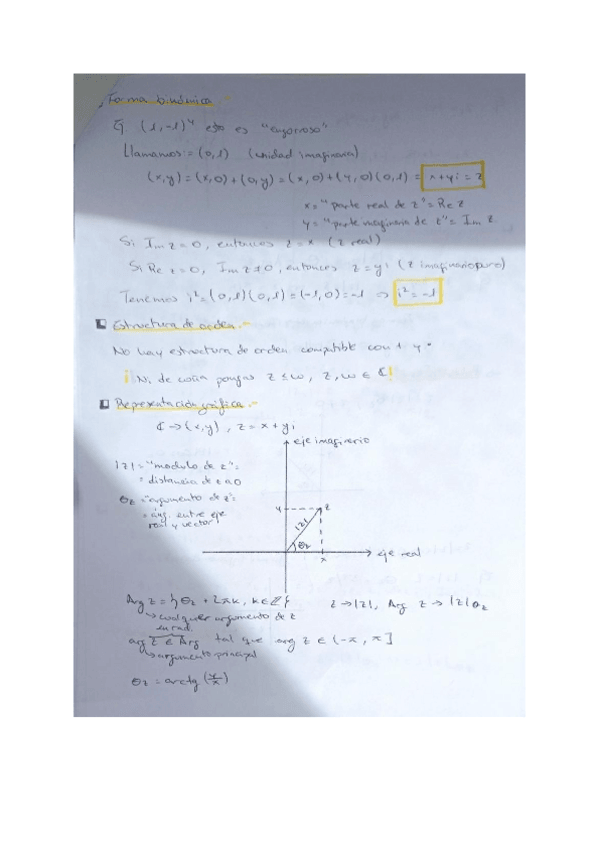 Forma binómica.-
Ej. (1,-1)⁴ esto es "engorroso"
Llamamos i = (0,1) (unidad imaginaria)
(x,y) = (x,0)+(0,y) = (x,0)+(y,0)(0,1) = x+yi = z
x = "parte real de z" = Re z
y = "parte imaginaria de z" = Im z
Si Im z = 0, entonces z = x (z real)
Si Re z = 0, Im z ≠ 0, entonces z = yi (z imaginario puro)
Tenemos i² = (0,1)(0,1) = (-1,0) = -1 ⇒ i² = -1
Estructura de orden.-
No hay estructura de orden compatible con + y ·
¡Ni de coña pongas z ≤ w, z, w ∈ ℂ!
Representación gráfica.-
ℂ → (x,y), z = x + yi
eje imaginario
|z| = "modulo de z" =
= distancia de z a 0
θz = "argumento de z" =
= áng. entre eje
real y vector
y
z
|z|
θz
x
eje real
Arg z = {θz + 2πk, k ∈ ℤ}
z → |z|, Arg z → |z|θz
↳ cualquier argumento de z
en rad.
arg z ∈ Arg tal que arg z ∈ (-π, π]
↳ argumento principal
θz = arctg (y/x)